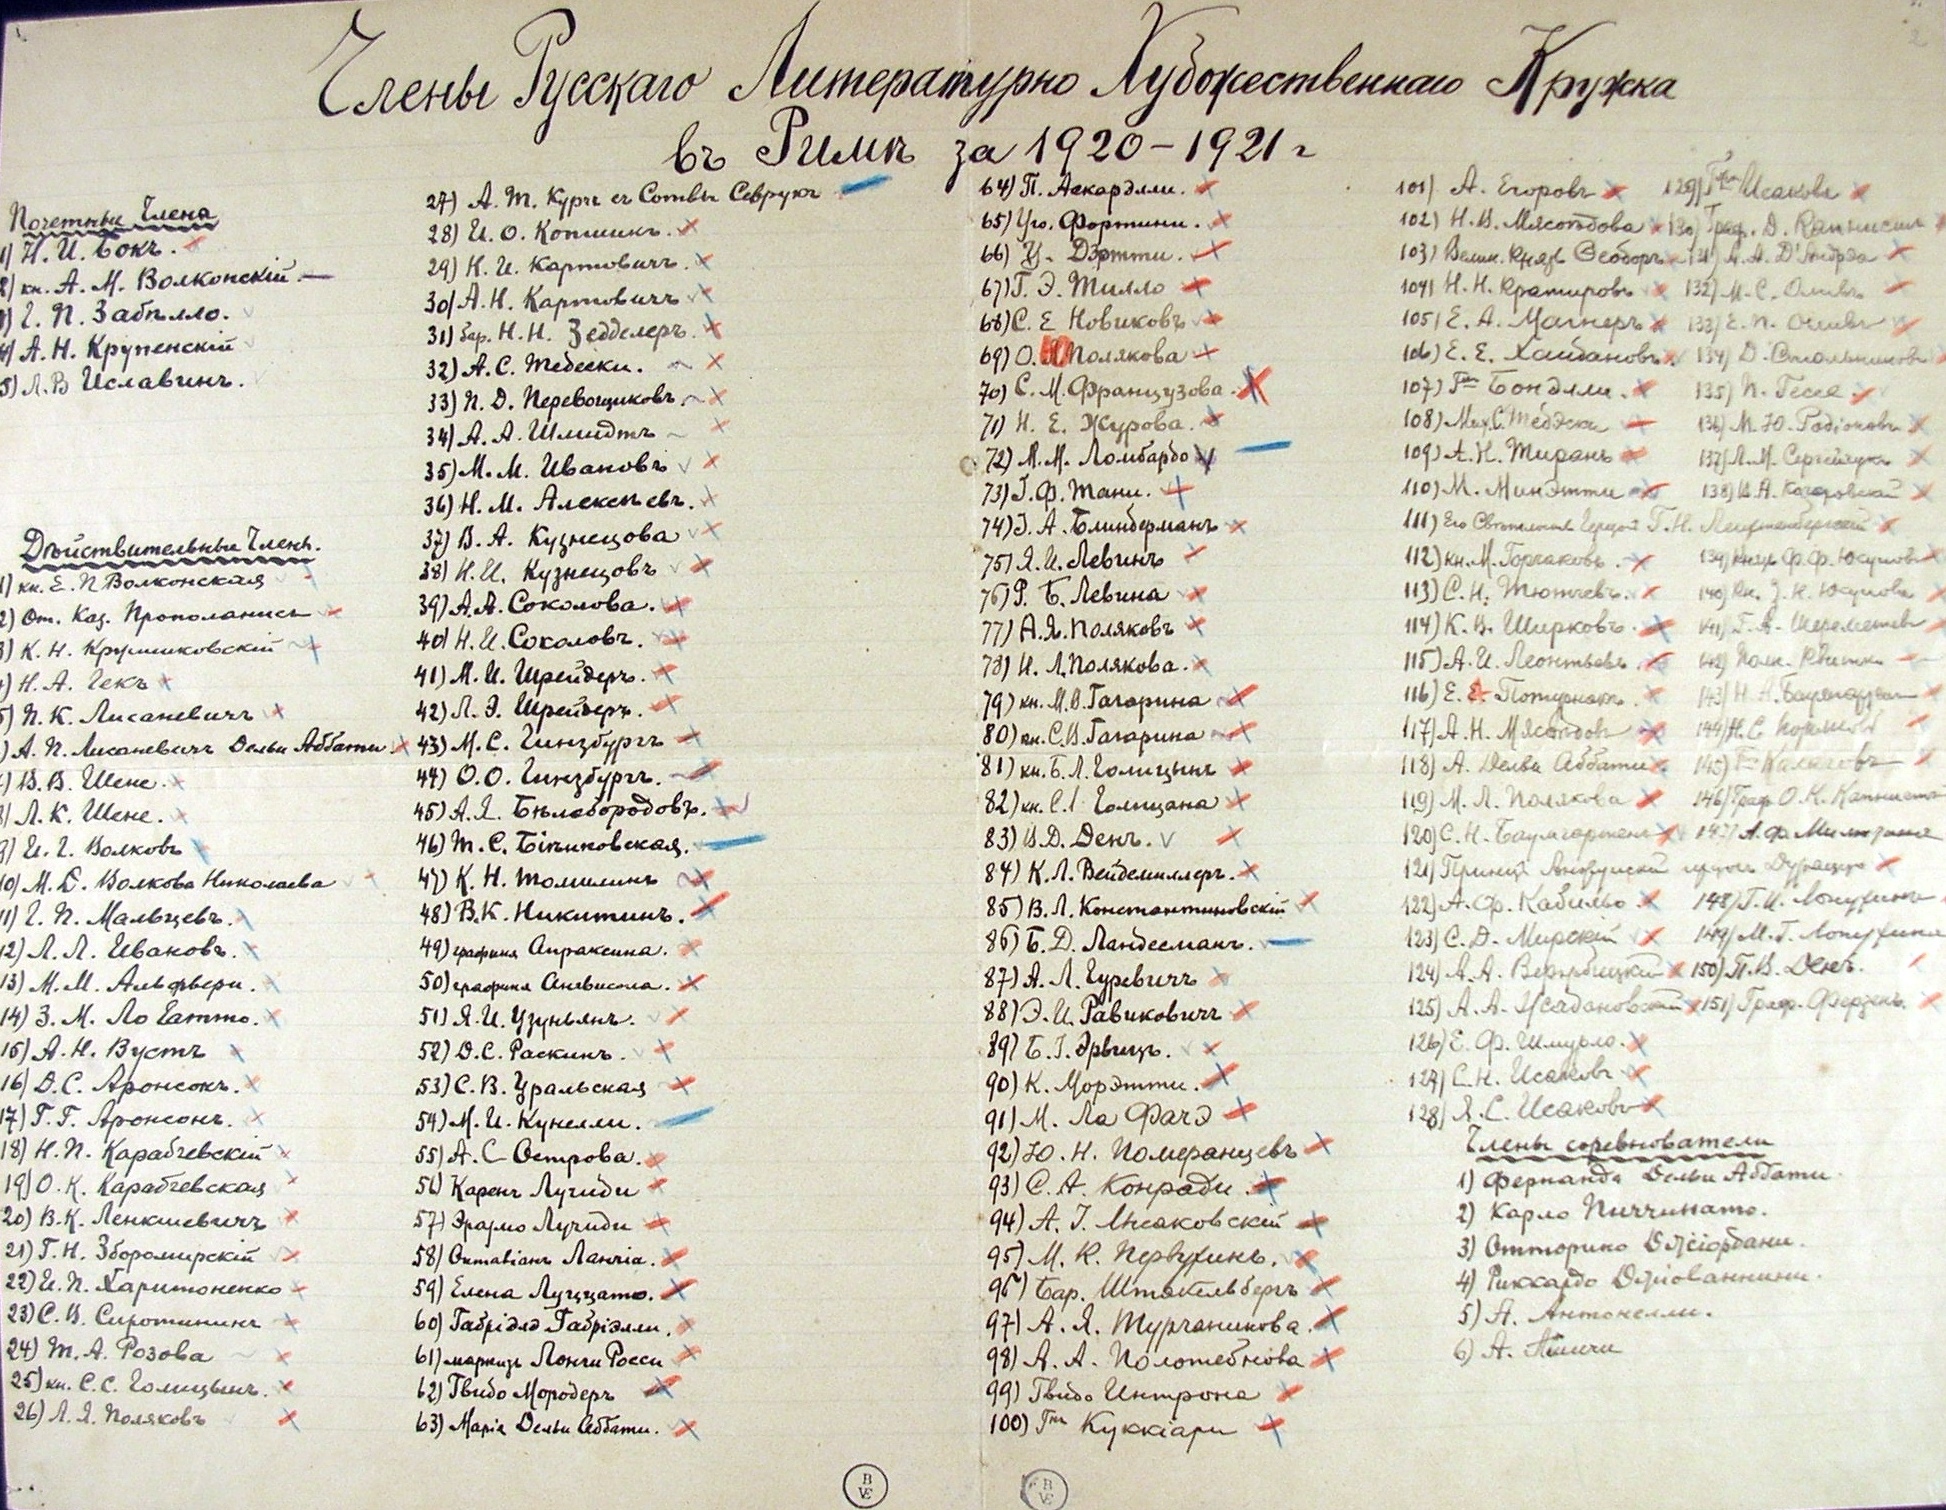 Члены Русскаго Литературно Художественнаго Кружка
въ Римѣ за 1920-1921 г
Почетные Члена
1) Н. И. Бокъ.
2) кн. А. М. Волконскій
3) Г. П. Забѣлло.
4) А. Н. Крупенскій
5) Л. В. Иславинъ.
Дѣйствительные Члены.
1) кн. Е. П. Волконская
2) От. Каз.
3) К. Н.
4) Н. А. Гекъ
5) П. К. Лисаневичъ
) А. П. Лисаневичъ Дельи Аббати
) В. В. Шене.
8) Л. К. Шене.
9) И. Г. Волковъ
10) М. Волкова Николаева
11) Г. П. Мальцевъ.
12) Л. Л. Ивановъ.
13) М. М. Альфьери.
14) З. М. Ло Гатто.
15) А. Н. Вустъ
16) Д. С. Аронсонъ.
17) Г. Г. Аронсонъ.
18) Н. П. Карабчевскій
19) О. К. Карабчевская
20) В. К. Ленкшевичъ
21) Г. Н. Збороmирскій
22) И. П. Харитоненко
23) С. В. Сиротининъ
24) Т. А. Розова
25) кн. С. С. Голицынъ.
26) Л. Я. Поляковъ
27) А. Т. Севрукъ
28) И. О. Копшинъ.
29) Н. И. Картовичъ.
30) А. Н. Картовичъ
31) бар. Н. Н. Зедделеръ.
32) А. С. Тебески.
33) П. Д. Перевощиковъ
34) А. А. Шмидтъ
35) М. М. Ивановъ
36) Н. М. Алексѣевъ.
37) В. А. Кузнецова
38) Н. И. Кузнецовъ
39) А. А. Соколова.
40) Н. И. Соколовъ.
41) М. И. Шрейдеръ.
42) Л. Э. Шрейдеръ.
43) М. С. Гинзбургъ
44) О. О. Гинзбургъ.
45) А. Я. Бѣлобородовъ.
46) Т. С.
47) К. Н. Томилинъ
48) В. К. Никитинъ.
49) графиня Апраксина.
50) графиня
51) Я. И. Узуньянъ.
52) Д. С. Раскинъ.
53) С. В. Уральская
54) М. И. Кунелли.
55) А. С Острова.
56) Каренъ Лучиди
57) Эразмо Лучиди
58) Октавіанъ Ланчіа.
59) Елена Луццато.
60) Габріэлэ Габріэлли.
61) маркизъ Лонги Росси
62) Гвидо Мородеръ
63) Марія Дельи Аббати.
64) П. Аскарэлли.
65) Уго. Фортини.
66) У. Дэтти.
67) Г. Э. Тилло
68) С. Е Новиковъ
69) О. Полякова
70) С. М. Французова.
71) Н. Е. Журова.
72) М. М. Ломбардо
73) Г. Ф. Тани.
74) І. А. Блинберманъ
75) Я. И. Левинъ
76) Р. Б. Левина
77) А. Я. Поляковъ
78) И. Л. Полякова.
79) кн. М. В. Гагарина
80) кн. С. В. Гагарина
81) кн. Б. Л. Голицынъ
82) кн. С.
83) В. Д. Денъ.
84) К. Л. Вейдемиллеръ.
85) В. Л. Константиновскій
86) Б. Д. Ландесманъ.
87) А. Л. Гуревичъ
88) Э. И. Равиковичъ
89) Б. І. Эрвицъ.
90) К. Морэтти.
91) М. Ла Фачэ
92) Ю. Н. Померанцевъ
93) С. А. Конради.
94) А. І.
95) М. К. Первухинъ.
96) Бар. Штакельбергъ
97) А. Я. Турчанинова.
98) А. А. Полотебнова
99) Гвидо Интрона
100) Куккіари
101) А. Егоровъ
102) Н. В. Мясоѣдова
103) Велик. Князь Ѳеодоръ
104) Н. Н. Кратировъ
105) Е. А. Магнеръ
106) Е. Е. Хлибановъ
107) Бондэли.
108) Тебэски
109) А. Н. Тиранъ
110) М. Минэтти
111) Его Свѣтлость Герцогъ Г. Н. Лейхтенбергскій
112) кн. М. Горчаковъ.
113) С. Н. Тютчевъ.
114) К. В. Ширковъ.
115) А. И. Леонтьевъ
116) Е. Е. Потурнакъ
117) А. Н. Мясоѣдовъ
118) А. Дельи Аббати
119) М. Л. Полякова
120) С. Н. Баумгартенъ
121)
122) А. Ф.
123) С. Д. Мирскій
124) А. А.
125) А. А.
126) Е. Ф. Шмурло.
127) С. Н. Исаковъ
128) Я. С. Исаковъ
Члены соревнователи
1) Фернанда Дельи Аббати
2) Карло Пиччинато.
3) Отторино
4) Риккардо Джіованнини.
5) А. Антонелли.
6) А.
129) Исакова
130) Граф. Д. Капнистъ
131) А. А. Д'Андрэа
132) М. С. Оливъ
133) Е. П. Оливъ
134) Д. Стольниковъ
135) П. Гессе
136) М. Ю. Родіоновъ
137) Л. М.
138) В. А.
139) князь Ф. Ф. Юсуповъ
140) Кн. З. Н. Юсупова
141) Г. А. Шереметевъ
142) Полк. Квитка
143) Н. А.
144) Н. С.
145)
146) Граф. О. К. Капнистъ
147) А. Ф.
148) Г. И. Лопухина
149) М. Г. Лопухина
150) П. В. Денъ.
151) Граф. Ферзенъ.
В
VE
В
VE